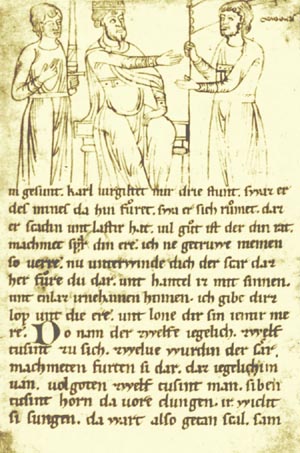 in gesunt. karl uirgiltet mir drie stunt. swaz er
des mines da hin fůret. swa er sich růmet. daz
er scadin unt laster hat. uil gůt ist der din rat.
machmet din ere. ich ne getruwe niemen
so uerre. nu underwinde dich der scar daz
her fůre du dar. unt handel iz mit sinnen.
unt enlaz hinnen. ich gibe dirz
lop unt die ere. unt lone dir sin iemir me
re. Do nam der zwelfe iegelich. zwelf
tusint zu sich. zwelue wurdin der scar.
machmeten furten si dar. daz iegelichim
uan. uolgoten zwelf tusint man. siben
tusint horn da uore clungen. ir wicliet
si sungen. da wart also getan scal. sam